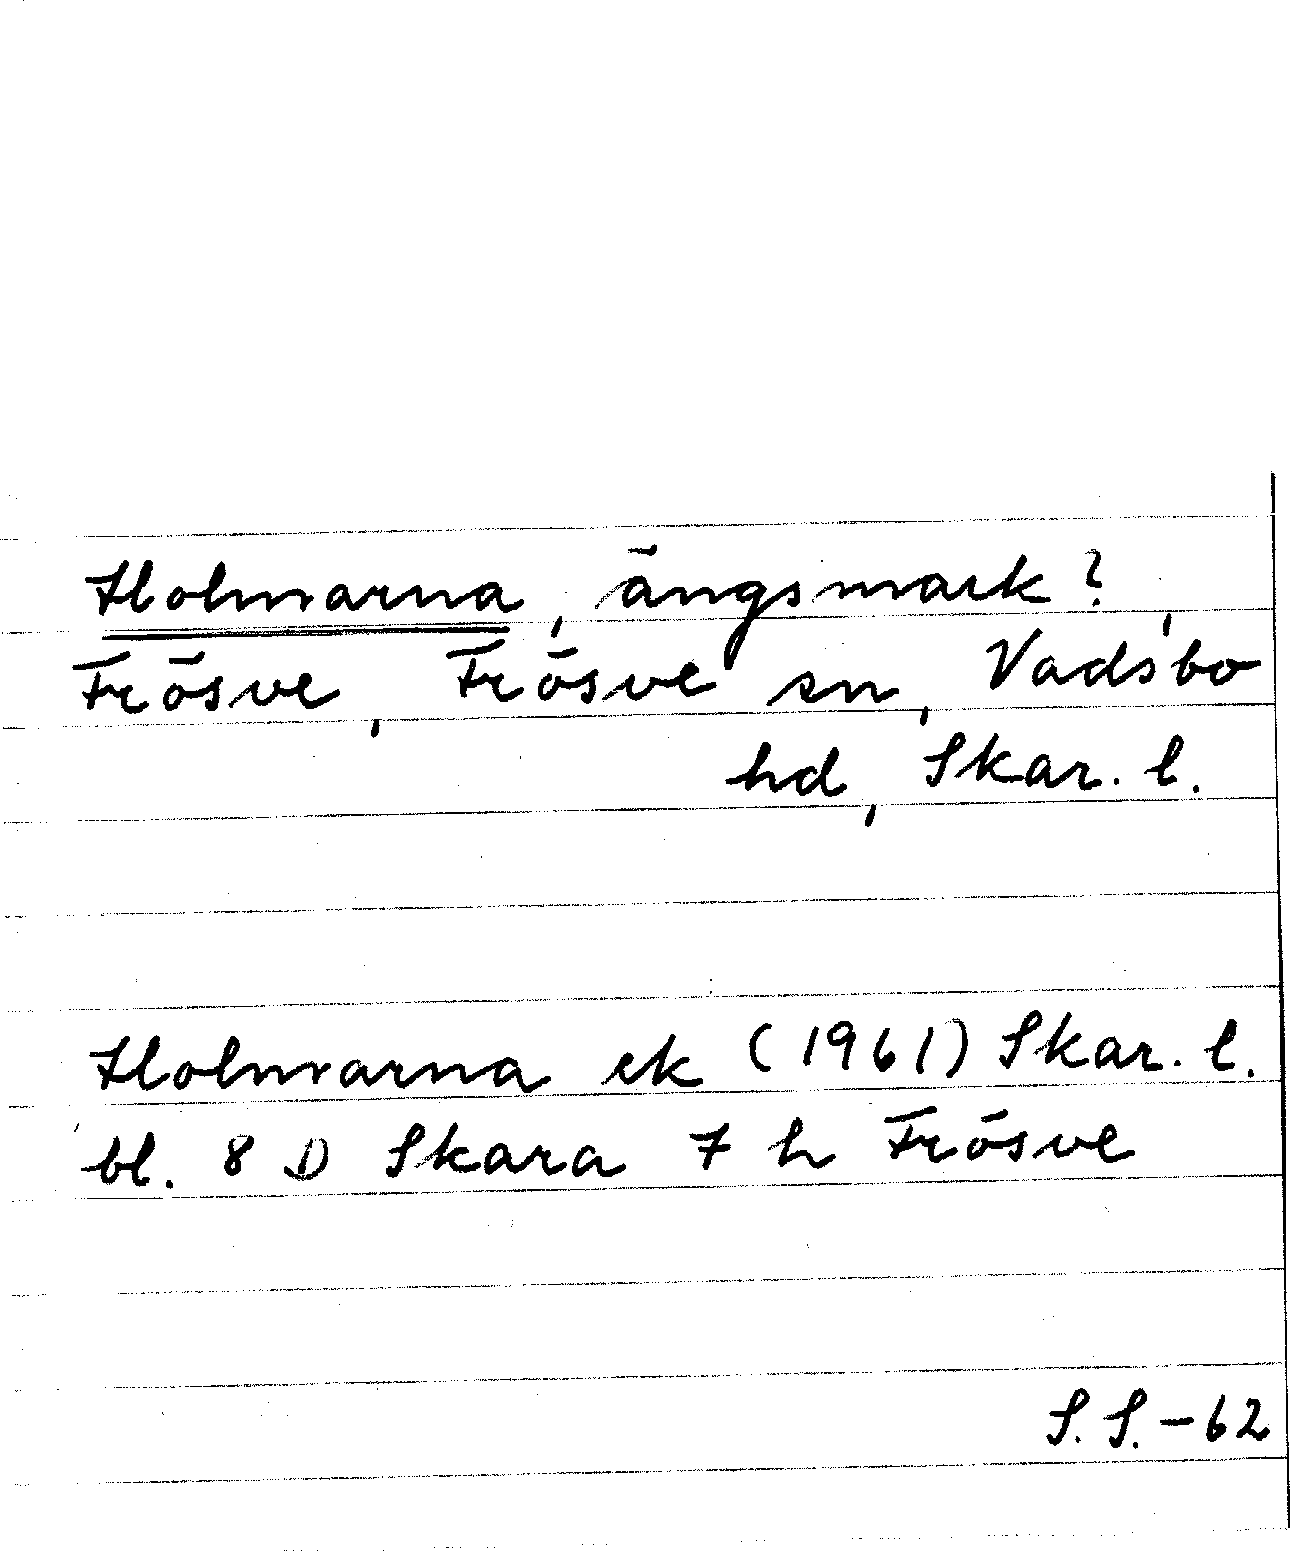 Holmarna, ängsmark?,
Frösve, Frösve sn, Vadsbo
hd, Skar. l.
Holmarna ek (1961) Skar. l.
bl. 8 D Skara 7 h Frösve
S. S. - 62